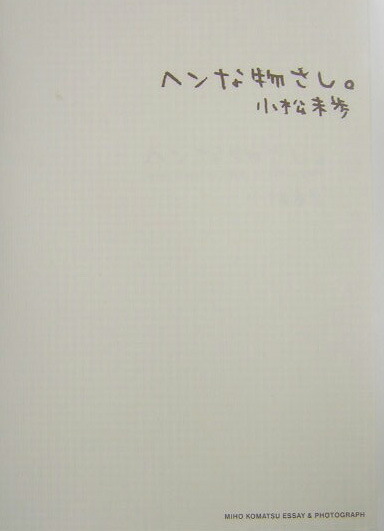 ヘンな物さし。
小松未歩
MIHO KOMATSU ESSAY & PHOTOGRAPH